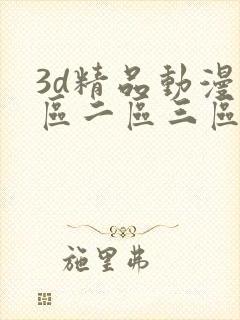 3d精品動漫
區二區三區
施里弗